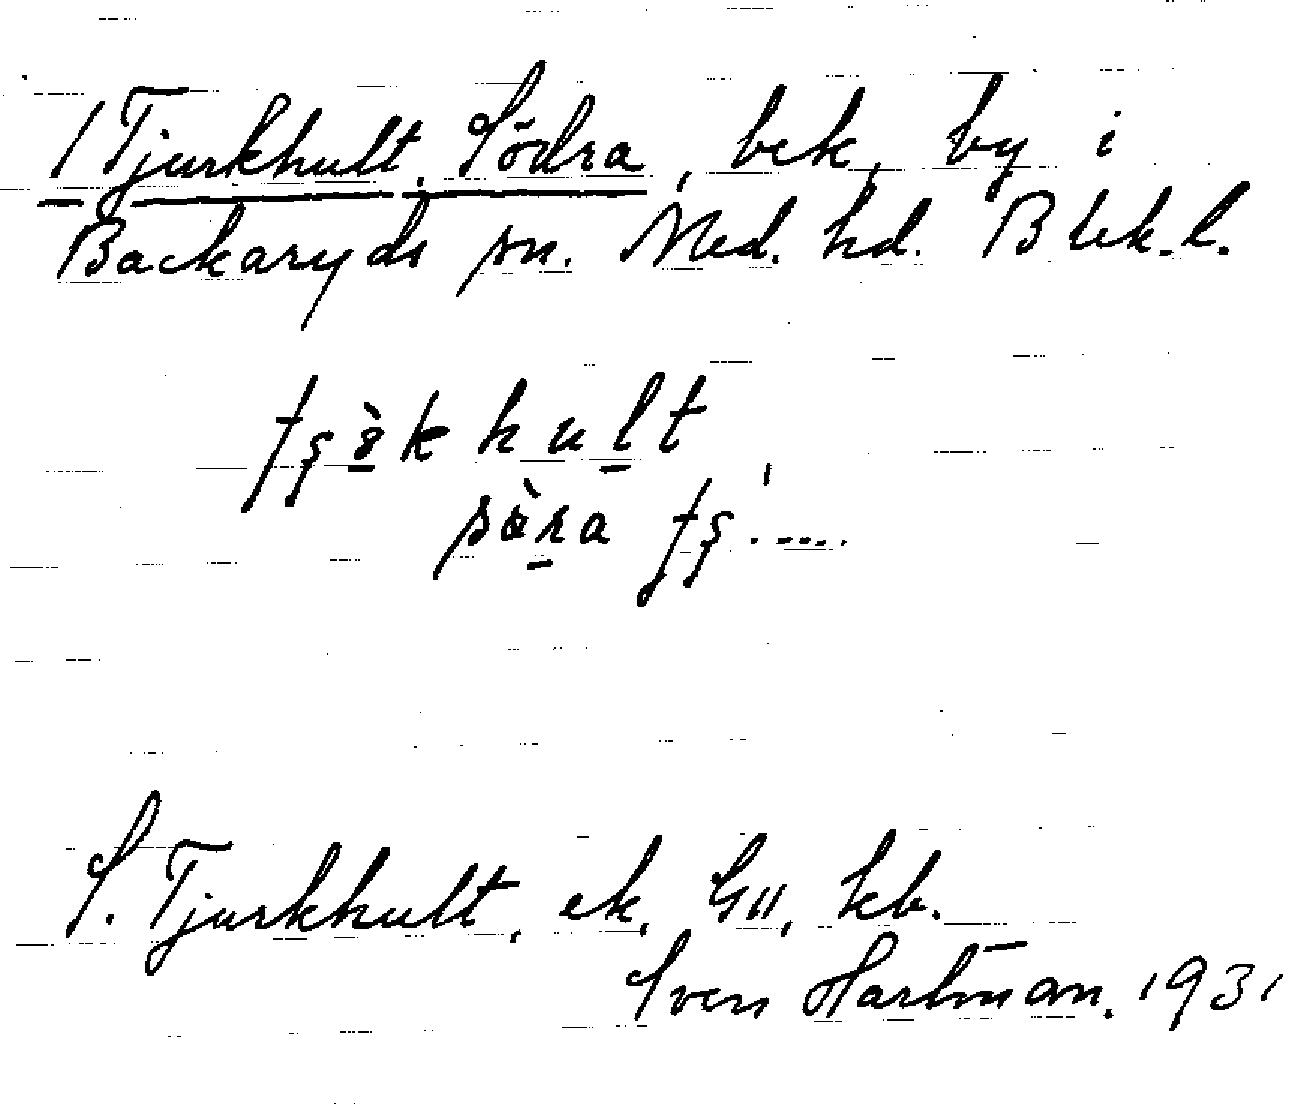 /Tjurkhult, Södra, bek, by i
Backaryds sn. Med. hd. Blek.l.
sö̀ra
S. Tjurkhult, ek, GII, kb.
Sven Hartman. 1931